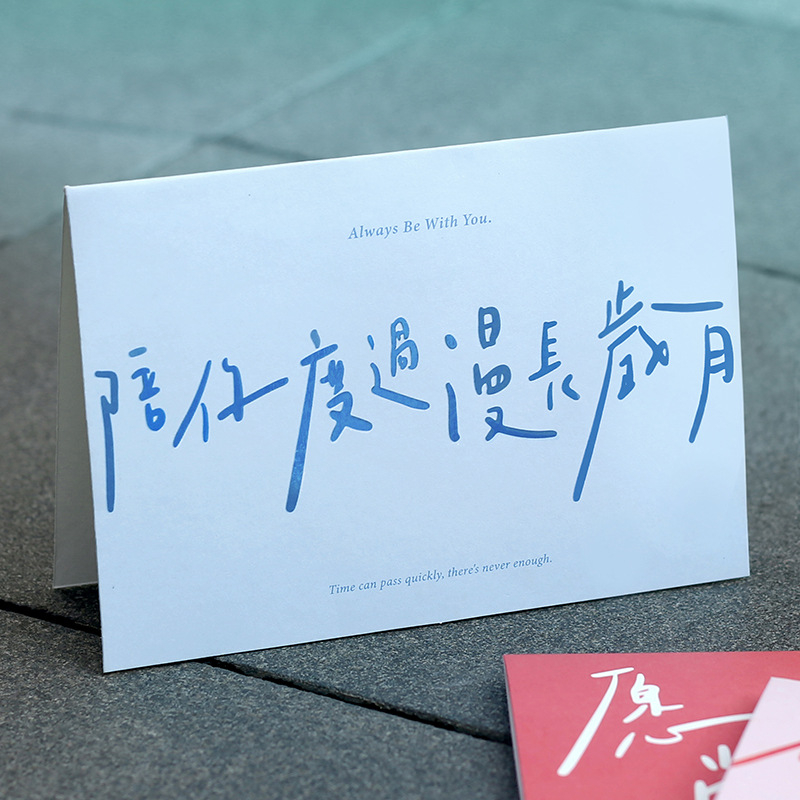 Always Be With You.
陪你度過漫長歲月
Time can pass quickly, there's never enough.
愿